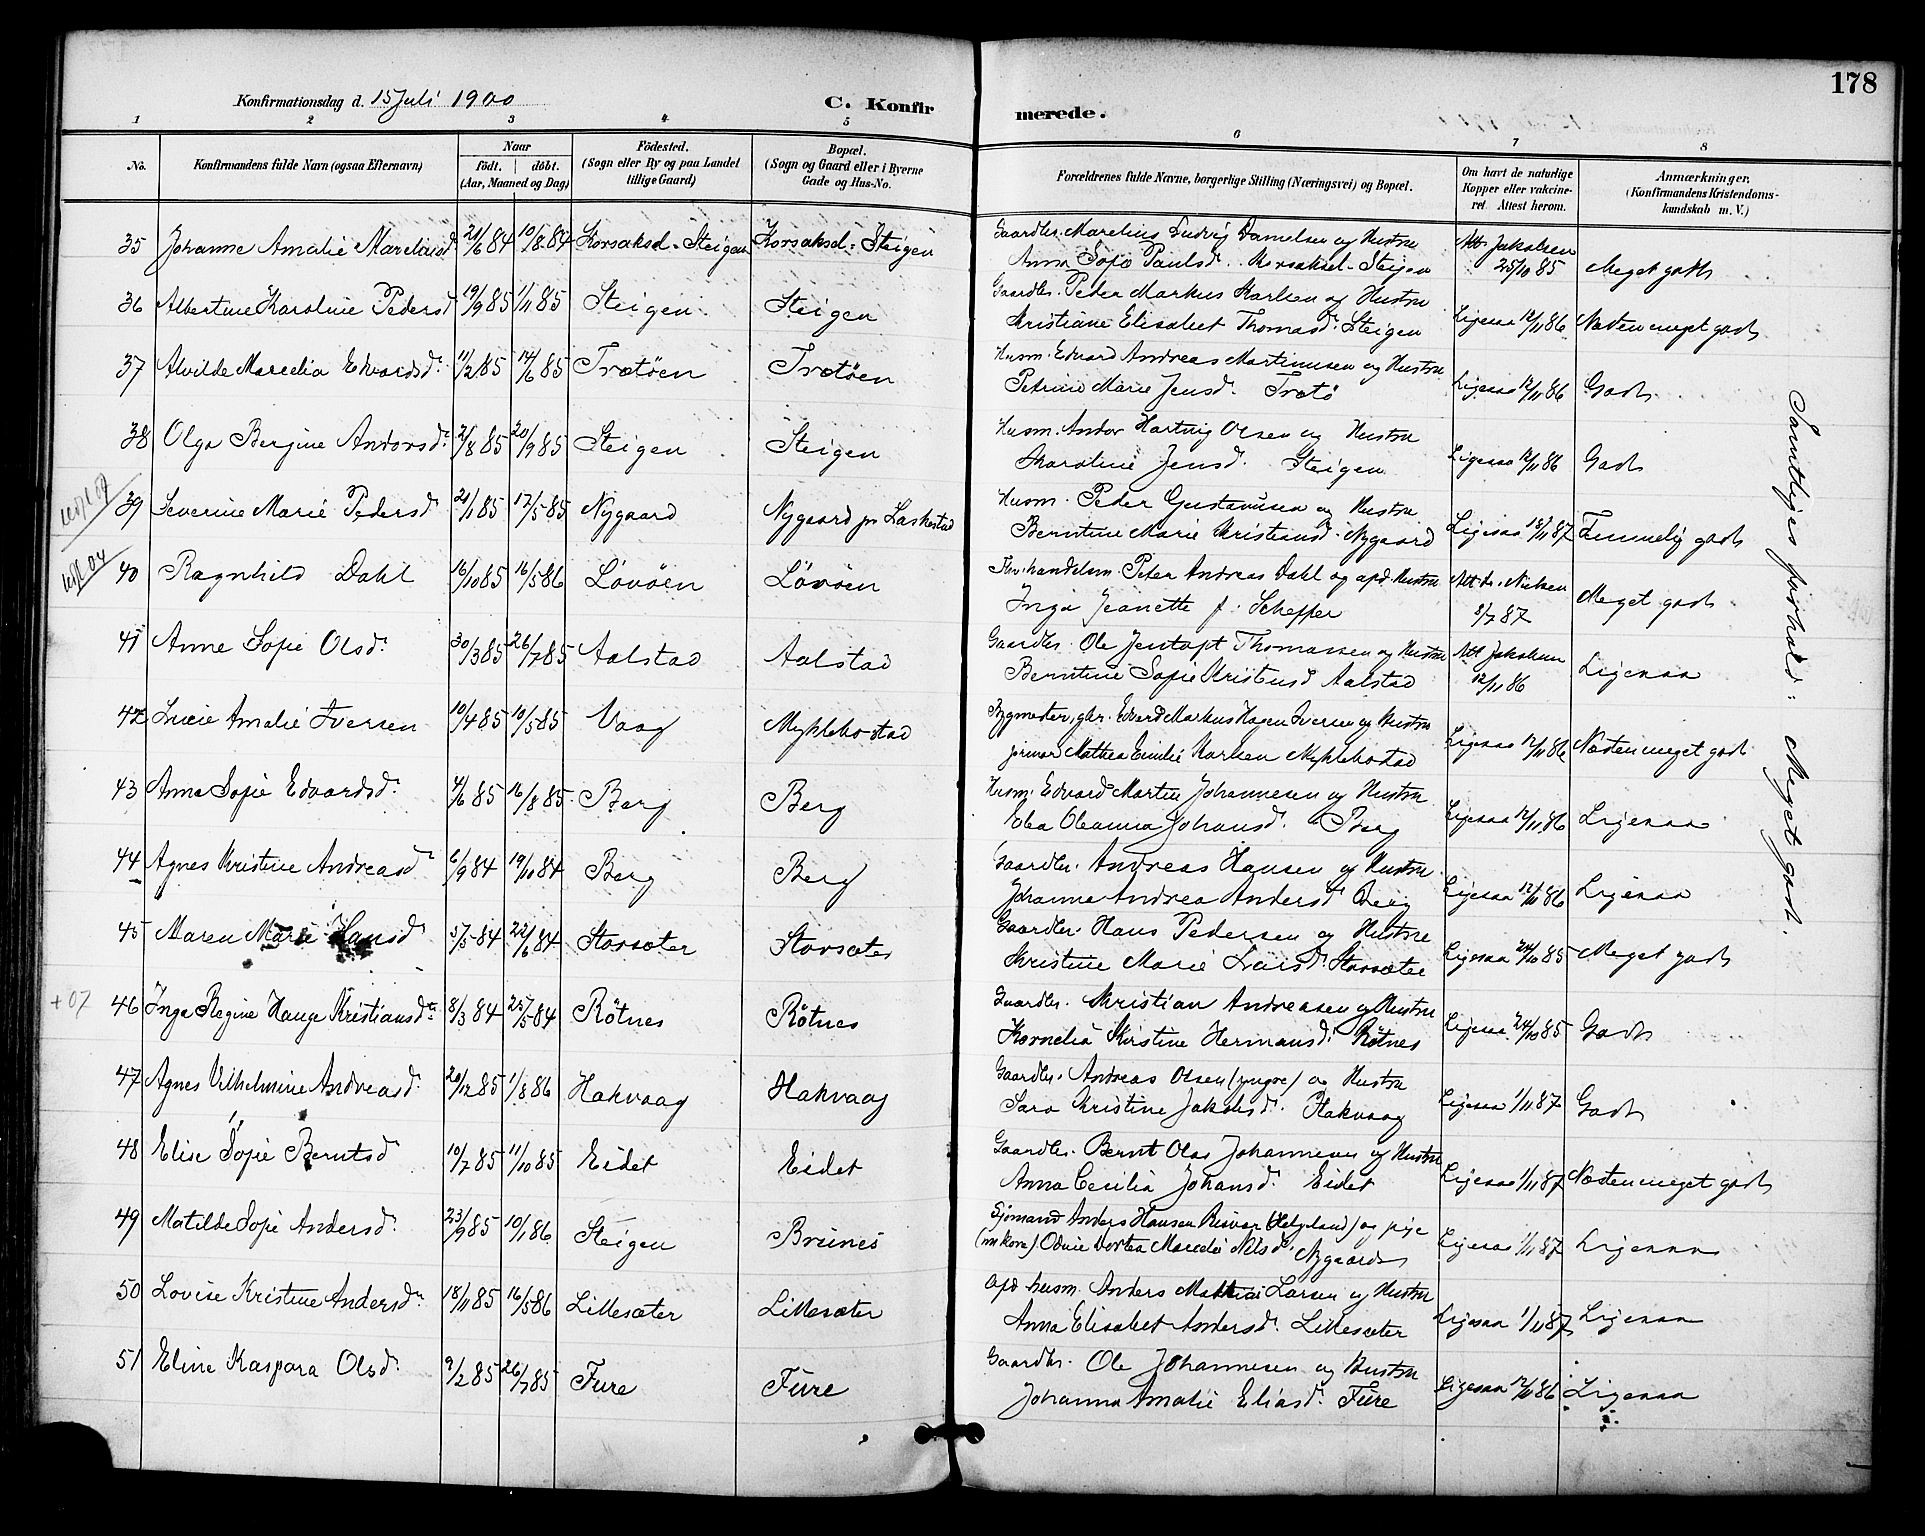 178
Konfirmationsdag d. 15 Juli 1900
C. Konfir
merede.
1 2 3 4 5 6 7 8
No.
Konfirmandens fulde Navn (ogsaa Efternavn)
Naar
födt. döbt.
(Aar, Maaned og Dag)
Födested.
(Sogn eller By og paa Landet
tillige Gaard)
Bopæl.
(Sogn og Gaard eller i Byerne
Gade og Hus-No.
Forældrenes fulde Navne, borgerlige Stilling (Næringsvei) og Bopæl.
Om havt de naturlige
Kopper eller vakcine-
ret. Attest herom.
Anmærkninger.
(Konfirmandens Kristendoms-
kundskab m. V.)
35 Johanne Amalie Mareliusd. 21/6 84 10/8 84 Korsaksel - Steigen Korsaksel - Steigen
Gaardbr. Marelius Ludvig Danielsen og Hustru
Anna Sofie Paulsd. Korsaksel - Steigen
Att. Jakobsen
25/10 85 Meget godt
36 Albertine Karoline Pedersd. 19/9 85 1/11 85 Steigen Steigen
Gaardbr. Peder Markus Karlsen og Hustru
Kristiane Elisabet Thomasd. Steigen
Ligesaa 12/11 86 Næsten meget godt
37 Alvilde Marcelia Edvardsd. 11/2 85 14/6 85 Trætöen Trætöen
Husm. Edvard Andreas Martinusen og Hustru
Petrine Marie Jensd. Trætö
Ligesaa 12/11 86 Godt
38 Olga Bergine Andorsd. 2/8 85 20/9 85 Steigen Steigen
Husm. Andor Hartvig Olsen og Hustru
Karoline Jensd. Steigen
Ligesaa 12/11 86 Godt
39 Severine Marie Pedersd. 21/1 85 17/5 85 Nygaard Nygaard pr Laskestad
Husm. Peder Gustavusen og Hustru
Berntine Marie Kristiansd. Nygaard
Ligesaa 18/11 87 Temmelig godt
40 Ragnhild Dahl 16/10 85 16/5 86 Lövöen Lövöen
Peter Andreas Dahl og afd. Hustru
Inga Jeanette f. Scheffer
Att. dr. Nielsen
8/7 87 Meget godt
41 Anne Sofie Olsd. 30/3 85 26/7 85 Aalstad Aalstad
Gaardbr. Ole Jentoft Thomassen og Hustru
Berntine Sofie Aalstad
Att. Jakobsen
12/11 86 Ligesaa
42 Amalie Iversen 10/4 85 10/5 85 Vaag Myklebostad
Bygmester, gbr. Edvard Markus Hagen Iversen og Hustru
Mathea Emilie Karlsen Myklebostad
Ligesaa 12/11 86 Næsten meget godt
43 Anna Sofie Edvardsd. 4/6 85 16/8 85 Berg Berg
Husm. Edvard Martin Johannesen og Hustru
Olea Oleanna Johansd. Berg
Ligesaa 12/11 86 Ligesaa
44 Agnes Kristine Andreasd. 6/9 84 19/10 84 Berg Berg
Gaardbr. Andreas Hansen og Hustru
Johanna Andrea Andersd. Berg
Ligesaa 12/11 86 Ligesaa
45 Maren Marie Hansd. 5/5 84 22/6 84 Storsæter Storsæter
Gaardbr. Hans Pedersen og Hustru
Kristine Marie Larsd. Storsæter
Ligesaa 24/10 85 Meget godt
+ 07
46 Inga Regine Hauge Kristiansd. 8/3 84 25/5 84 Rötnes Rötnes
Gaardbr. Kristian Andreasen og Hustru
Kornelia Kirstine Hermansd. Rötnes
Ligesaa 24/10 85 Godt
47 Agnes Vilhelmine Andreasd. 20/12 85 1/8 86 Hakvaag Hakvaag
Gaardbr. Andreas Olsen (yngre) og Hustru
Sara Kristine Jakobsd. Hakvaag
Ligesaa 1/11 87 Godt
48 Elise Sofie Berntsd. 10/7 85 11/10 85 Eidet Eidet
Gaardbr. Bernt Olas Johannesen og Hustru
Anna Cecilia Johansd. Eidet
Ligesaa 1/11 87 Næsten meget godt
49 Matilde Sofie Andersd. 23/9 85 10/1 86 Steigen Brunes
Sjömand Anders Hansen (Helgeland) og pige
Dortea Nilsd. Nygaard
Ligesaa 1/11 87 Ligesaa
50 Lovise Kristine Andersd. 18/11 85 16/5 86 Lillesæter Lillesæter
Afd. husm. Anders Mathias Larsen og Hustru
Anna Elisabet Andersd. Lillesæter
Ligesaa 1/11 87 Ligesaa
51 Eline Kaspara Olsd. 9/2 85 26/7 85 Fure Fure
Gaardbr. Ole Johannesen og Hustru
Johanna Amalie Eliasd. Fure
Ligesaa 12/11 86 Ligesaa
Samtliges forhold: Meget godt.